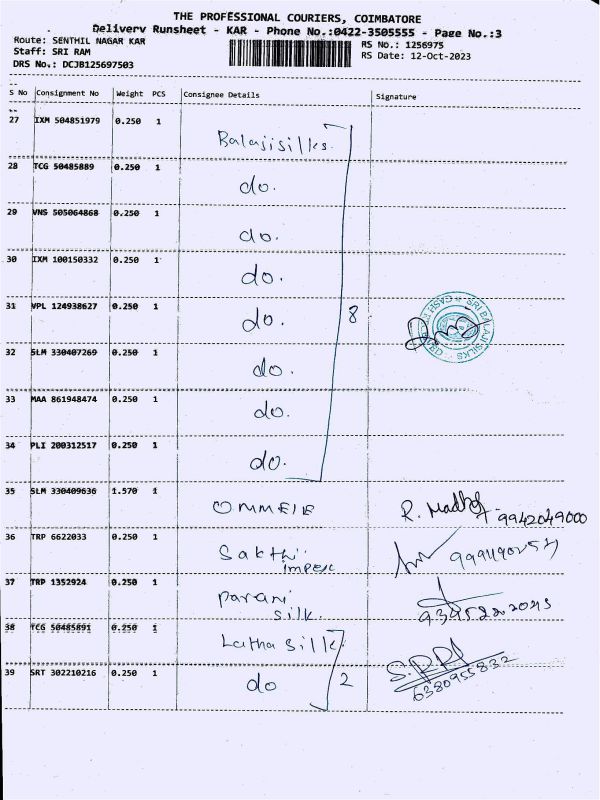 THE PROFESSIONAL COURIERS, COIMBATORE
Delivery Runsheet - KAR - Phone No.:0422-3505555 - Page No.:3
Route: SENTHIL NAGAR KAR
RS No.: 1256975
Staff: SRI RAM
RS Date: 12-Oct-2023
DRS No.: DCJB125697503
S No Consignment No Weight PCS Consignee Details Signature
27 IXM 504851979 0.250 1
Balajisilks.
28 TCG 50485889 0.250 1
do.
29 VNS 505064868 0.250 1
do.
30 IXM 100150332 0.250 1
do.
31 VPL 124938627 0.250 1
do. 8
SRI BALAJI SILKS
32 SLM 330407269 0.250 1
do.
33 MAA 861948474 0.250 1
do.
34 PLI 200312517 0.250 1
do.
35 SLM 330409636 1.570 1
R. 9942049000
36 TRP 6622033 0.250 1
Sakthi
37 TRP 1352924 0.250 1
Parani
silk.
38 TCG 50485891 0.250 1
Latha Silk
39 SRT 302210216 0.250 1
do 2
6380955832